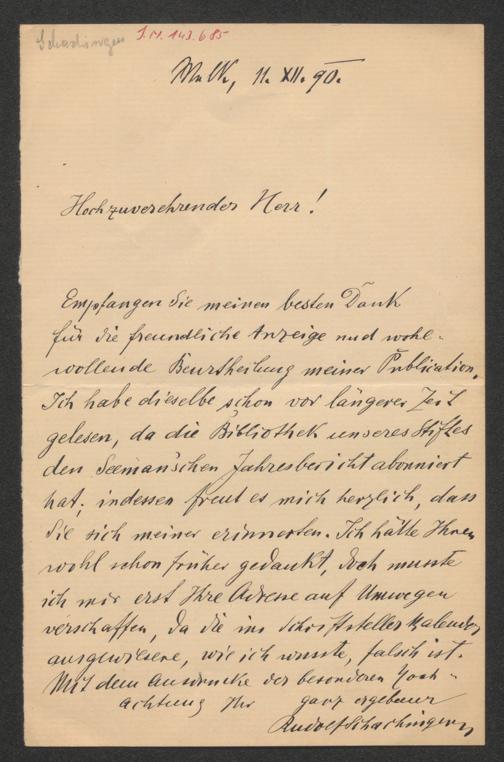 Schachinger
I.N. 143.685
Melk, 11. XII. 90.
Hochzuverehrender Herr!
Empfangen Sie meinen besten Dank
für die freundliche Anzeige und wohl-
wollende Beurtheilung meiner Publication.
Ich habe dieselbe schon vor längerer Zeit
gelesen, da die Bibliothek unseres Stiftes
den Seeman'schen Jahresbericht abonniert
hat; indessen freut es mich herzlich, dass
Sie sich meiner erinnerten. Ich hätte Ihnen
wohl schon früher gedankt, doch musste
ich mir erst Ihre Adresse auf Umwegen
verschaffen, da die im Schriftsteller Kalender
ausgewiesene, wie ich wusste, falsch ist.
Mit dem Ausdrucke der besonderen Hoch-
achtung Ihr ganz ergebener
Rudolf Schachinger